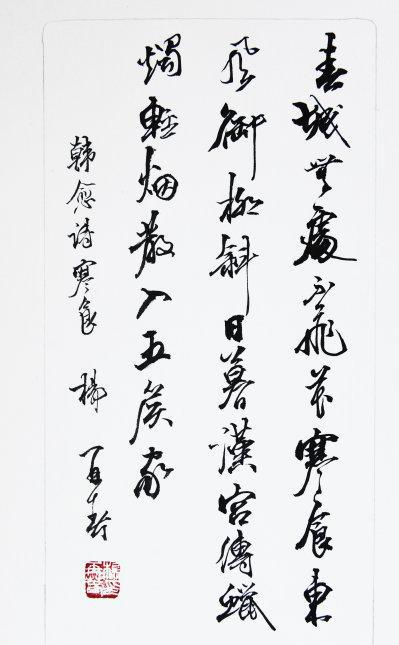 春城無處不飛花寒食東
風御柳斜日暮漢宮傳蠟
燭輕烟散入五侯家
韓愈詩寒食 楊